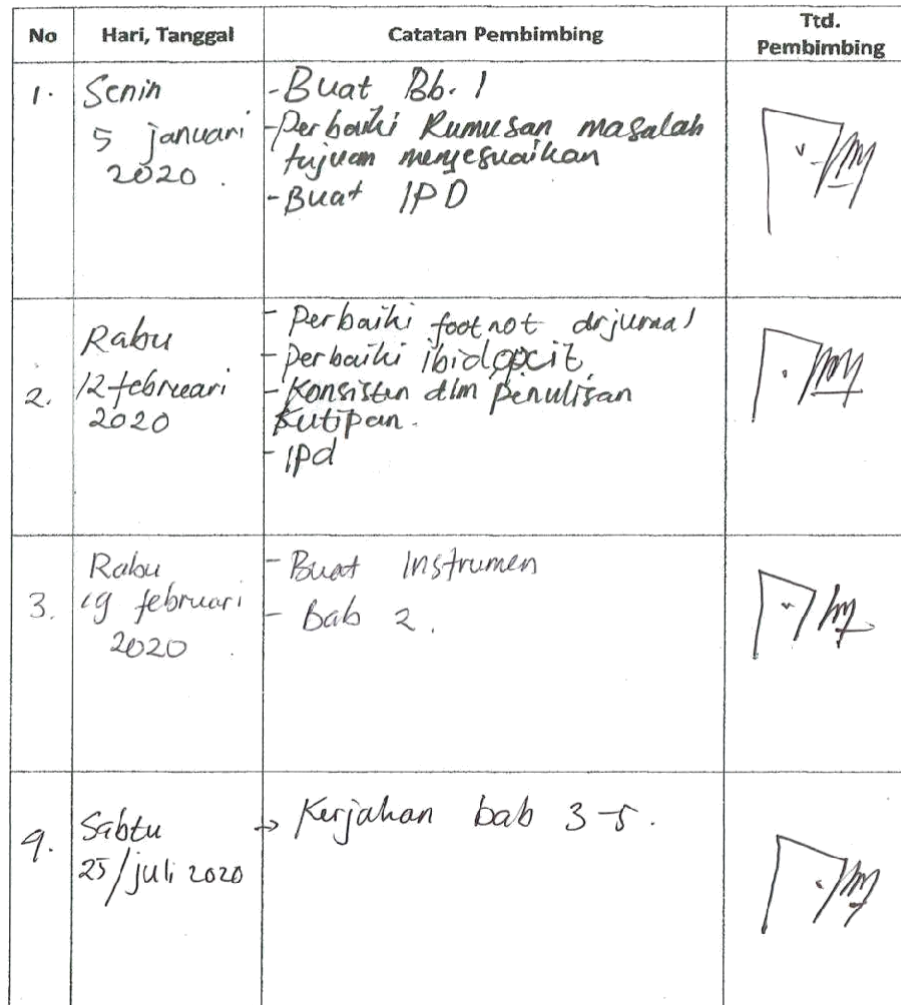 No Hari, Tanggal Catatan Pembimbing Ttd.
Pembimbing
1. Senin
5 januari
2020.
- Buat Bb. 1
- Perbaiki Rumusan masalah
tujuan menyesuaikan
- Buat IPD
2. Rabu
12 februari
2020
- Perbaiki footnot drjurnal
- perbaiki ibid opcit
- Konsisten dlm penulisan
Kutipan.
- IPd
3. Rabu
19 februari
2020.
- Buat Instrumen
- Bab 2.
4. Sabtu
25/juli 2020
→ Kerjakan bab 3-5.